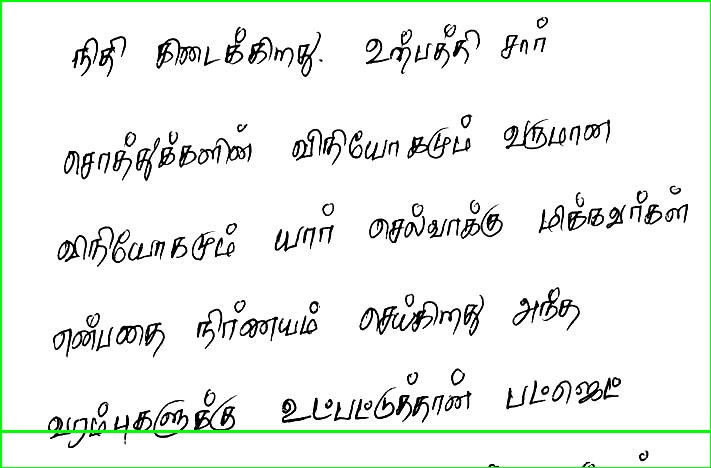 நிதி கிடைக்கிறது. உற்பத்தி சார்
சொத்துக்களின் விநியோகமும் வருமான
விநியோகமும் யார் செல்வாக்கு மிக்கவர்கள்
என்பதை நிர்ணயம் செய்கிறது அந்த
வரம்புகளுக்கு உட்பட்டுத்தான் பட்ஜெட்